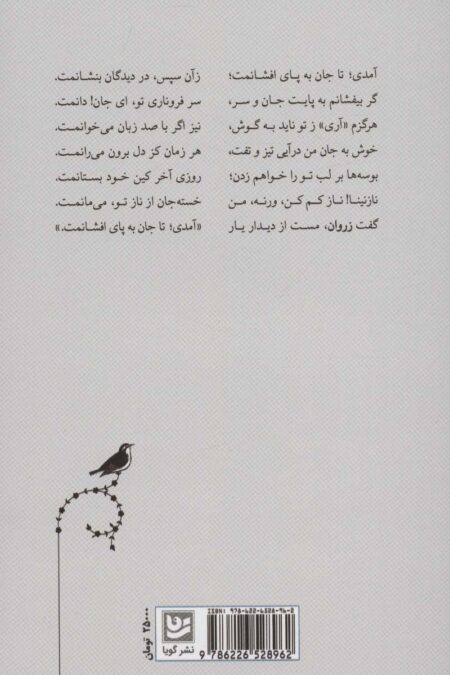 آمدی؛ تا جان به پای افشانمت؛ زآن سپس، در دیدگان بنشانمت.
گر بیفشانم به پایت جان و سر، سر فروناری تو، ای جان! دانمت.
هرگزم «آری» ز تو ناید به گوش، نیز اگر با صد زبان می‌خوانمت.
خوش به جان من درآیی تیز و تفت، هر زمان کز دل برون می‌رانمت.
بوسه‌ها بر لب تو را خواهم زدن؛ روزی آخر کین خود بستانمت.
نازنینا! ناز کم کن، ورنه، من خسته‌جان از ناز تو، می‌مانمت.
گفت زروان، مست از دیدار یار «آمدی؛ تا جان به پای افشانمت.»
ISBN: 978-622-6528-96-2
۲۵۰۰۰ تومان
نشر گویا
9 786226 528962